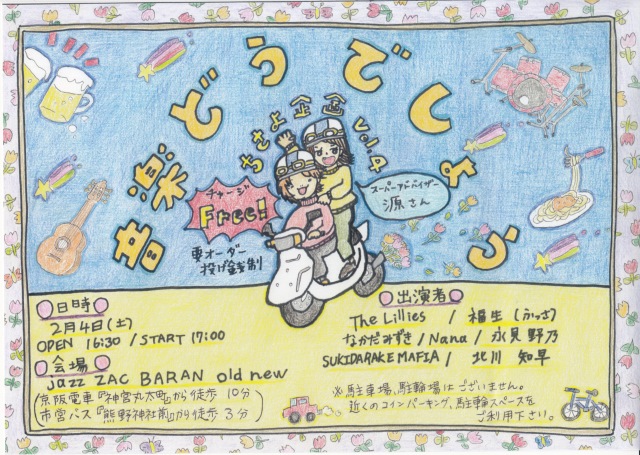 音楽どうでしょう
ちさよ企画 Vol.4
チャージ
Free!
要オーダー
投げ銭制
スーパーアドバイザー
源さん
○日時○
2月4日(土)
OPEN 16:30 / START 17:00
○会場○
jazz ZAC BARAN old new
(京阪電車『神宮丸太町』から徒歩 10分)
(市営バス『熊野神社前』から徒歩 3分)
○出演者○
The Lillies / 福生 (ふっさ)
なかだみずき / Nana / 永見 野乃
SUKIDARAKE MAFIA / 北川 知早
※駐車場、駐輪場はございません。
近くのコインパーキング、駐輪スペースを
ご利用下さい。